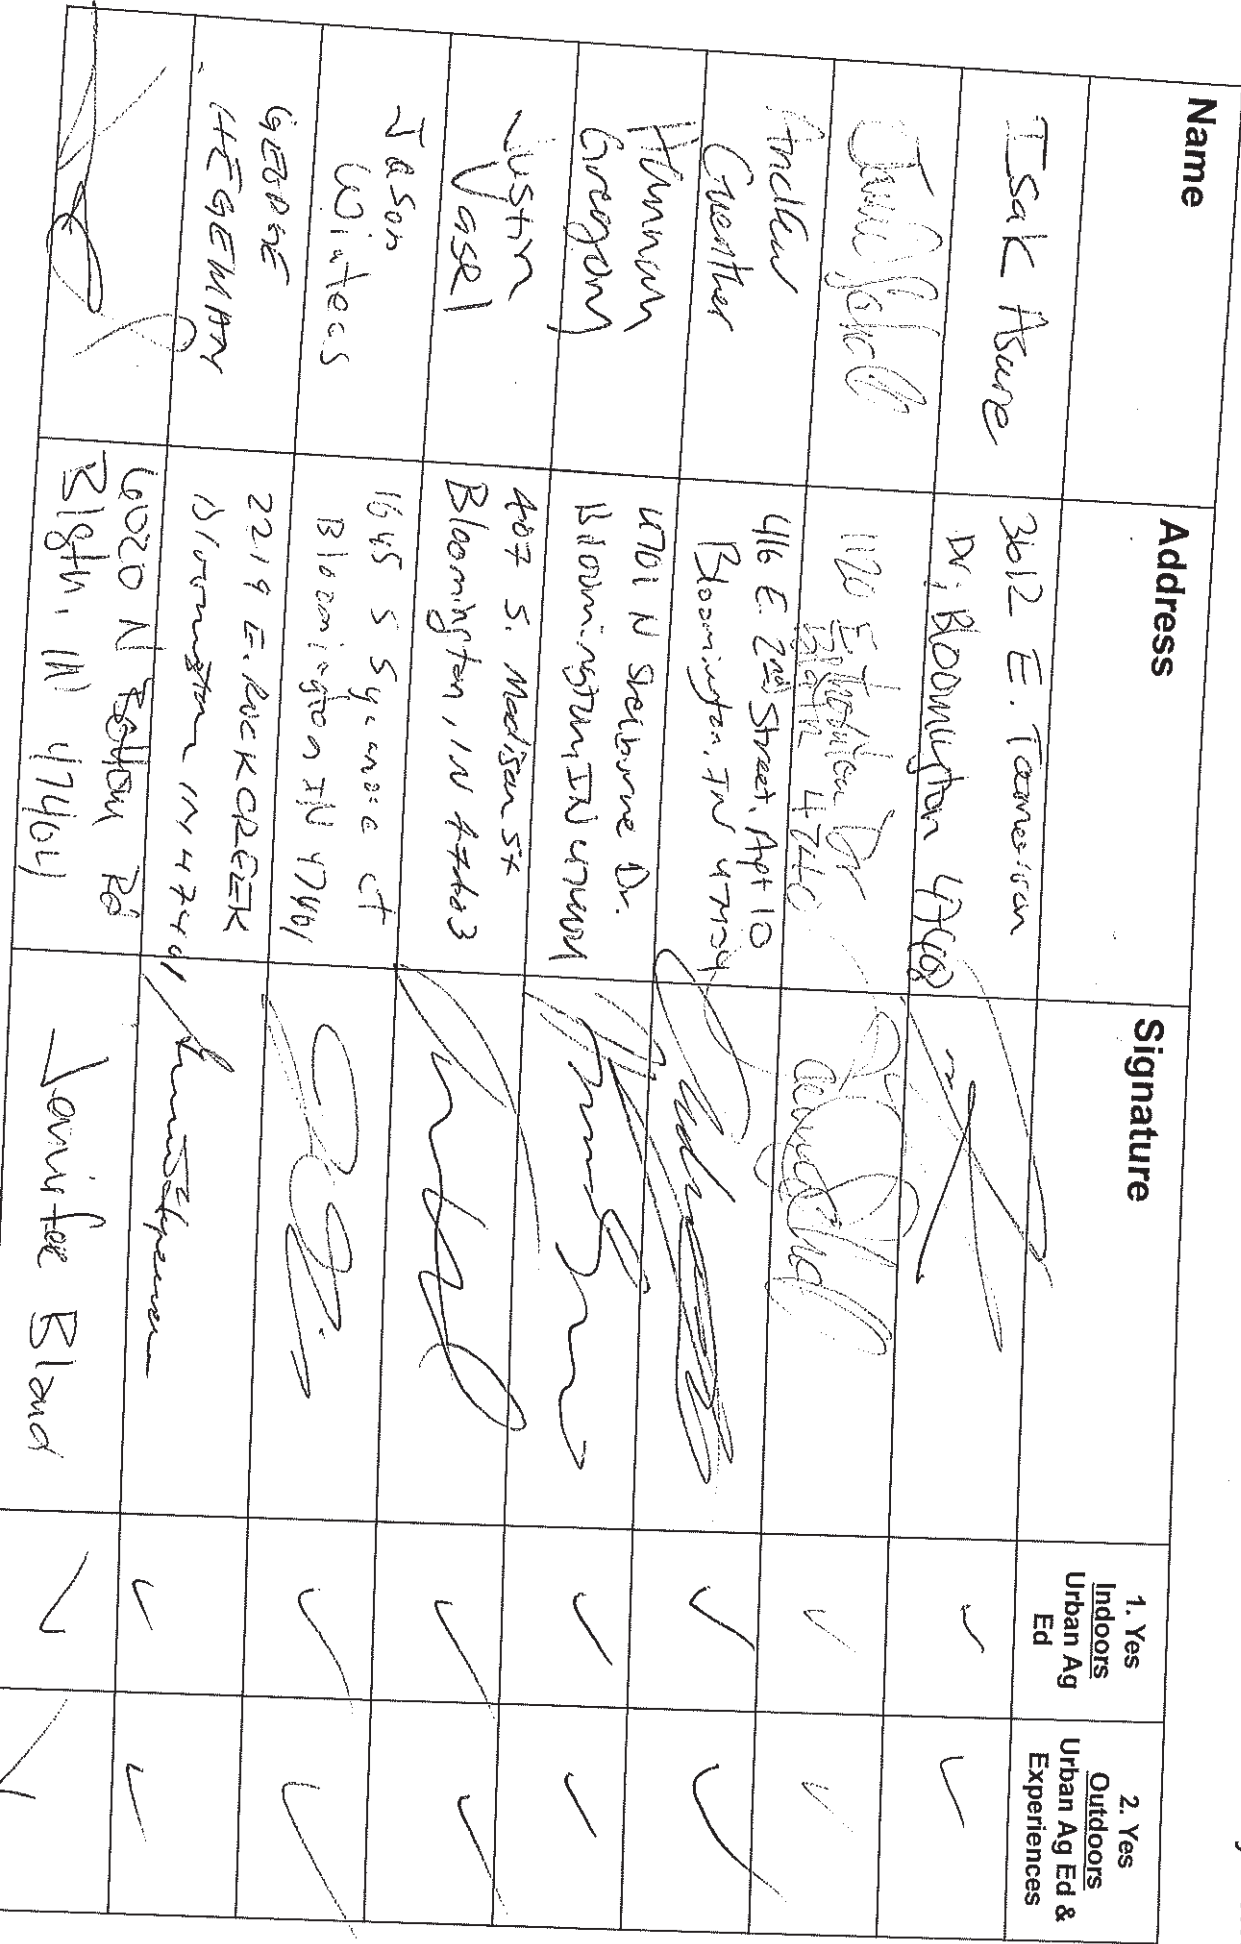 Name
Address
Signature
1. Yes
Indoors
Urban Ag
Ed
2. Yes
Outdoors
Urban Ag Ed &
Experiences
Isak Asure
3612 E.
Dr, Bloomington 47408
1120 E.
Dr
Andrew
Guenther
416 E. 2nd Street, Apt 10
Bloomington, IN 47404
Hannah
Gregory
4701 N Shelburne Dr.
Bloomington IN 47404
Justin
Vasel
407 S. Madison St
Bloomington, IN 47403
Jason
Winters
1645 S Sycamore Ct
Bloomington IN 47401
GEORGE
HEGEMAN
2219 E. ROCK CREEK
Bloomington IN 47401
6020 N Rd
Blgtn, IN 47404
Jennifer Bland